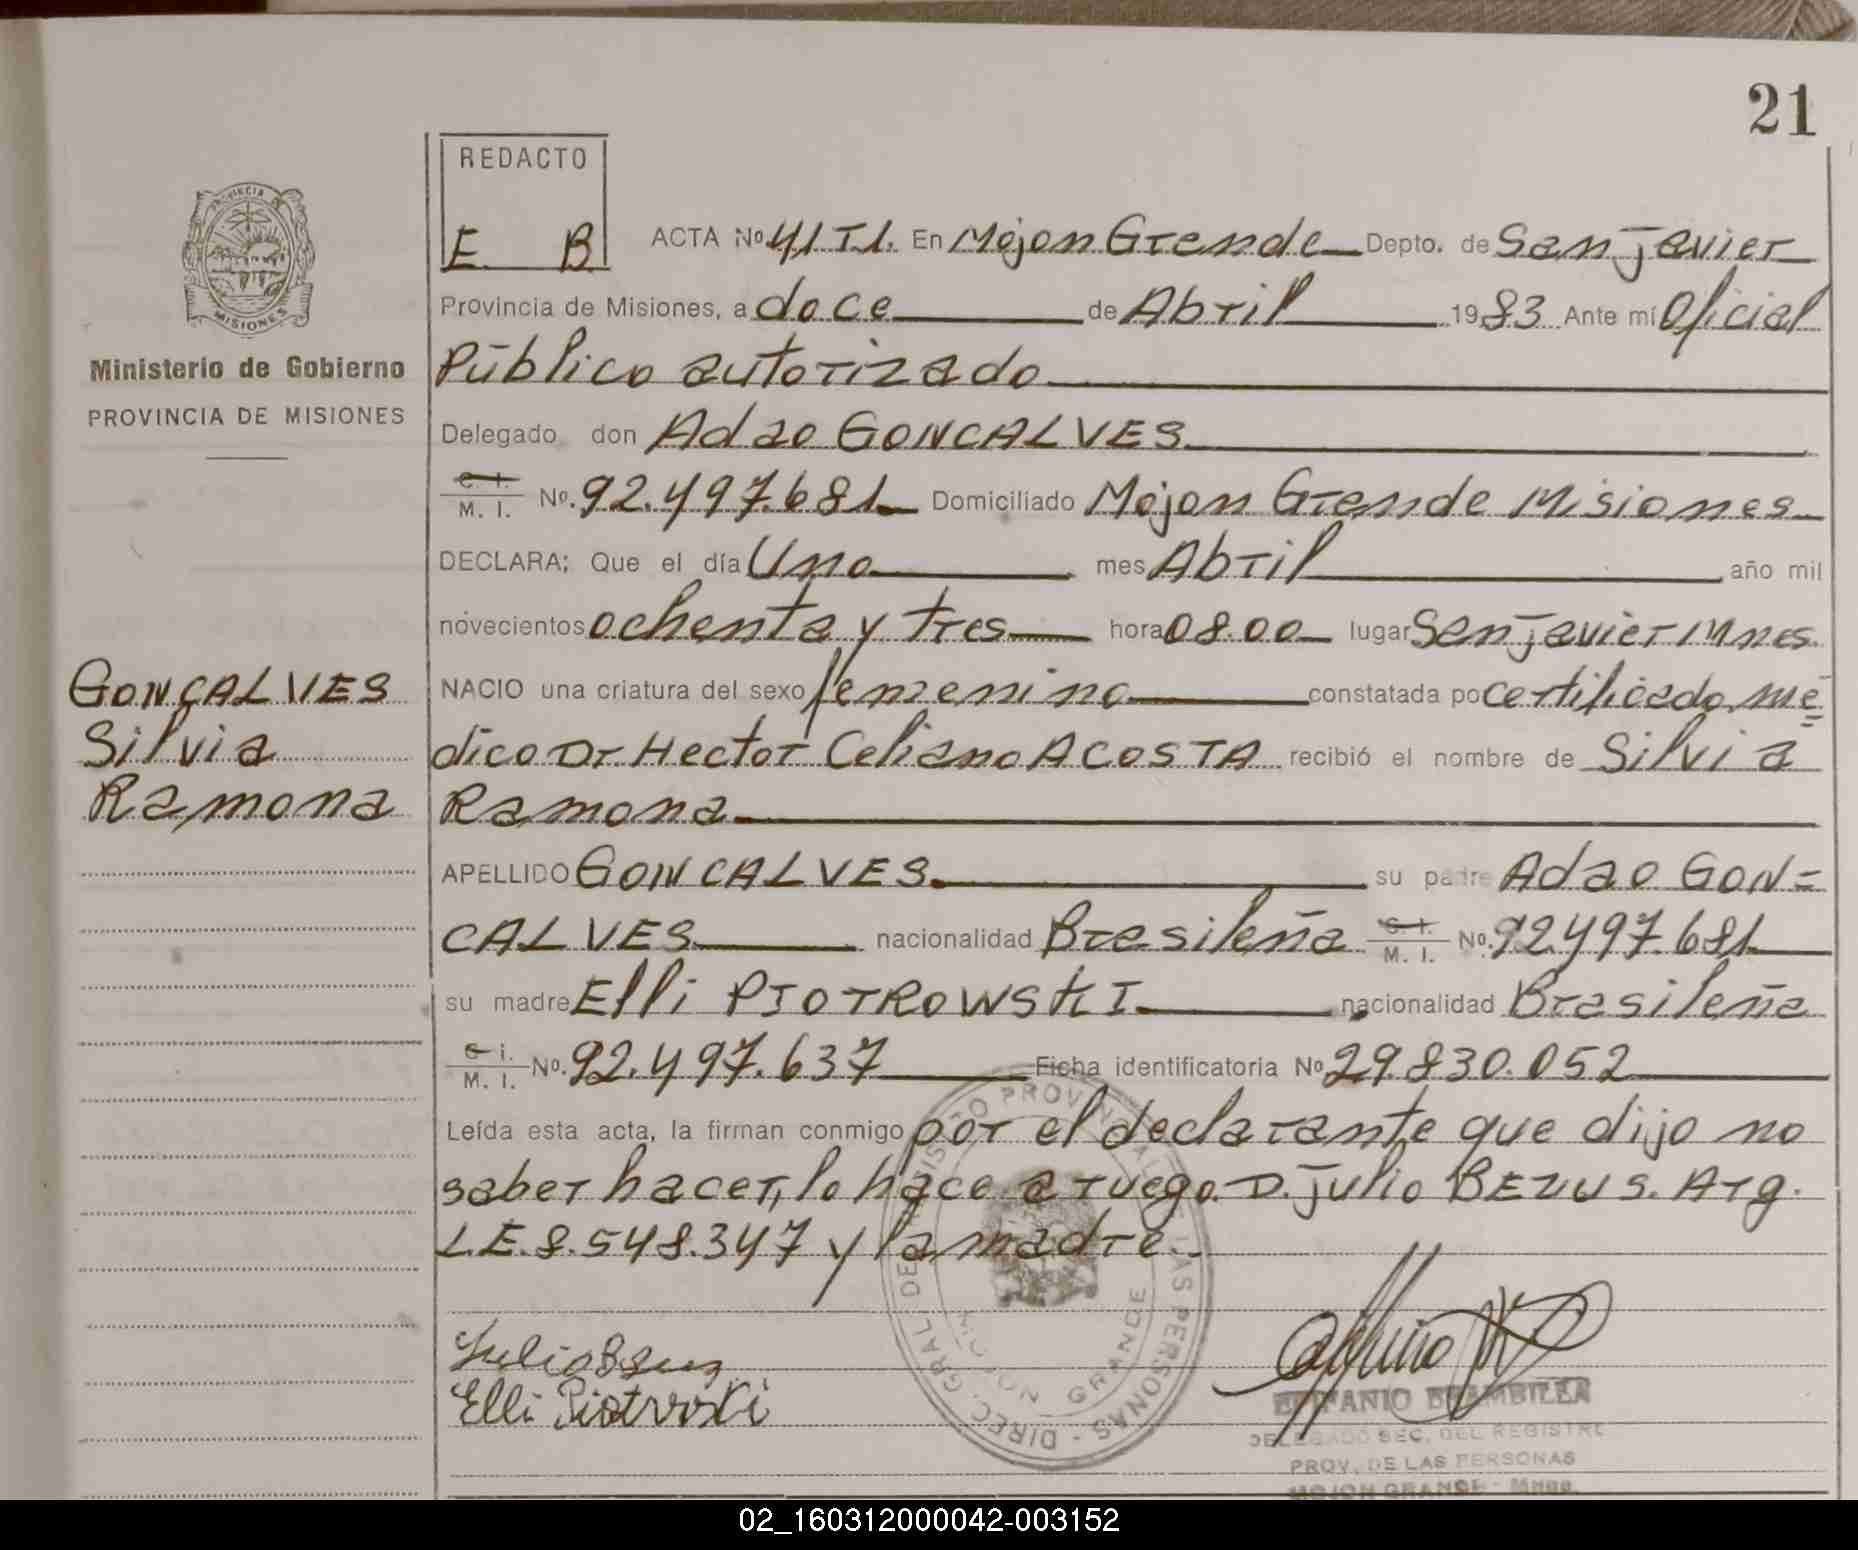 21
REDACTO
E B
ACTA Nº 41 T.1. En Mojon Grande Depto. de San Javier
Provincia de Misiones, a doce de Abril 1983 Ante mí Oficial
Público autorizado
Delegado don Adao GONCALVES
C. I. M. I. Nº. 92.497.681 Domiciliado Mojon Grande Misiones
DECLARA; Que el día Uno mes Abril año mil
novecientos ochenta y tres hora 08.00 lugar San Javier Mnes.
NACIO una criatura del sexo femenino constatada po certificado me=
dico Dr. Hector Celiano ACOSTA recibió el nombre de Silvia
Ramona
APELLIDO GONCALVES su padre Adao GON=
CALVES nacionalidad Brasileña C. I. M. I. Nº. 92.497.681
su madre Elli PIOTROWSKI nacionalidad Brasileña
C. I. M. I. Nº. 92.497.637 Ficha identificatoria Nº 29.830.052
Leída esta acta, la firman conmigo por el declarante que dijo no
saber hacer, lo hace a ruego D. Julio BEZUS. Arg.
L.E. 8.548.347 y la madre.
PROVINCIA DE
MISIONES
Ministerio de Gobierno
PROVINCIA DE MISIONES
GONCALVES
Silvia
Ramona
Elli Piotroski
DIREC. GRAL. DE REGISTRO PROVINCIAL DE LAS PERSONAS
MOJON GRANDE
EPIFANIO BRAMBILLA
DELEGADO SEC. DEL REGISTRO
PROV. DE LAS PERSONAS
MOJON GRANDE - Mnes.
02_160312000042-003152